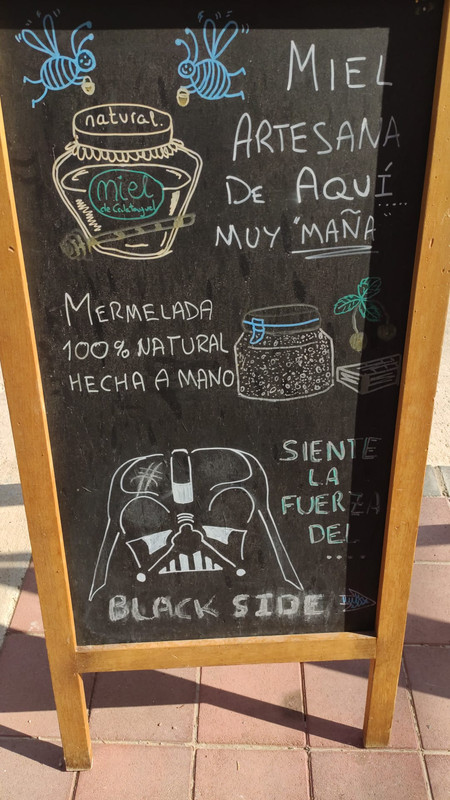 MIEL
ARTESANA
DE AQUÍ
MUY "MAÑA"
natural.
miel
de Calatayud
MERMELADA
100% NATURAL
HECHA A MANO
SIENTE
LA
FUERZA
DEL
....
BLACK SIDE